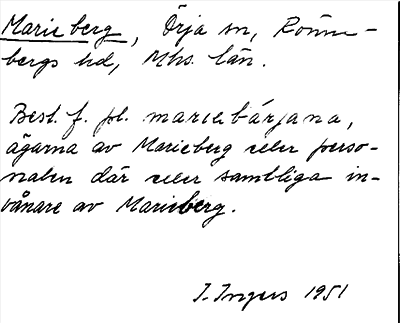 Marieberg, Örja sn, Rönne-
bergs hd, Mhs. län.
Best. f. pl. mariebärjana,
ägarna av Marieberg eller perso-
nalen där eller samtliga in-
vånare av Marieberg.
I. Ingers 1951